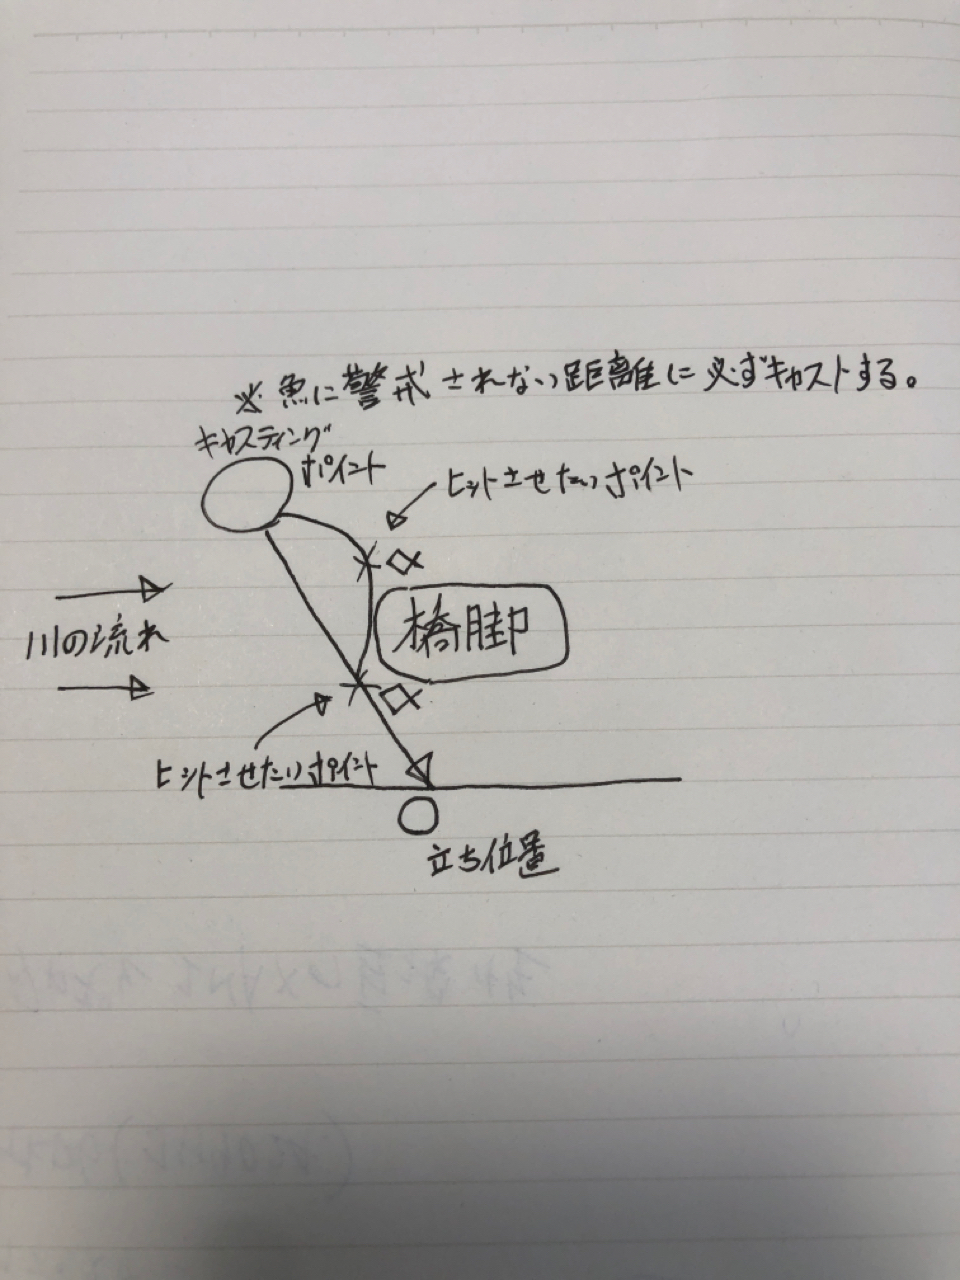 ※魚に警戒されない距離に必ずキャストする。
キャスティング
ポイント
ヒットさせたいポイント
橋脚
川の流れ
ヒットさせたいポイント
立ち位置